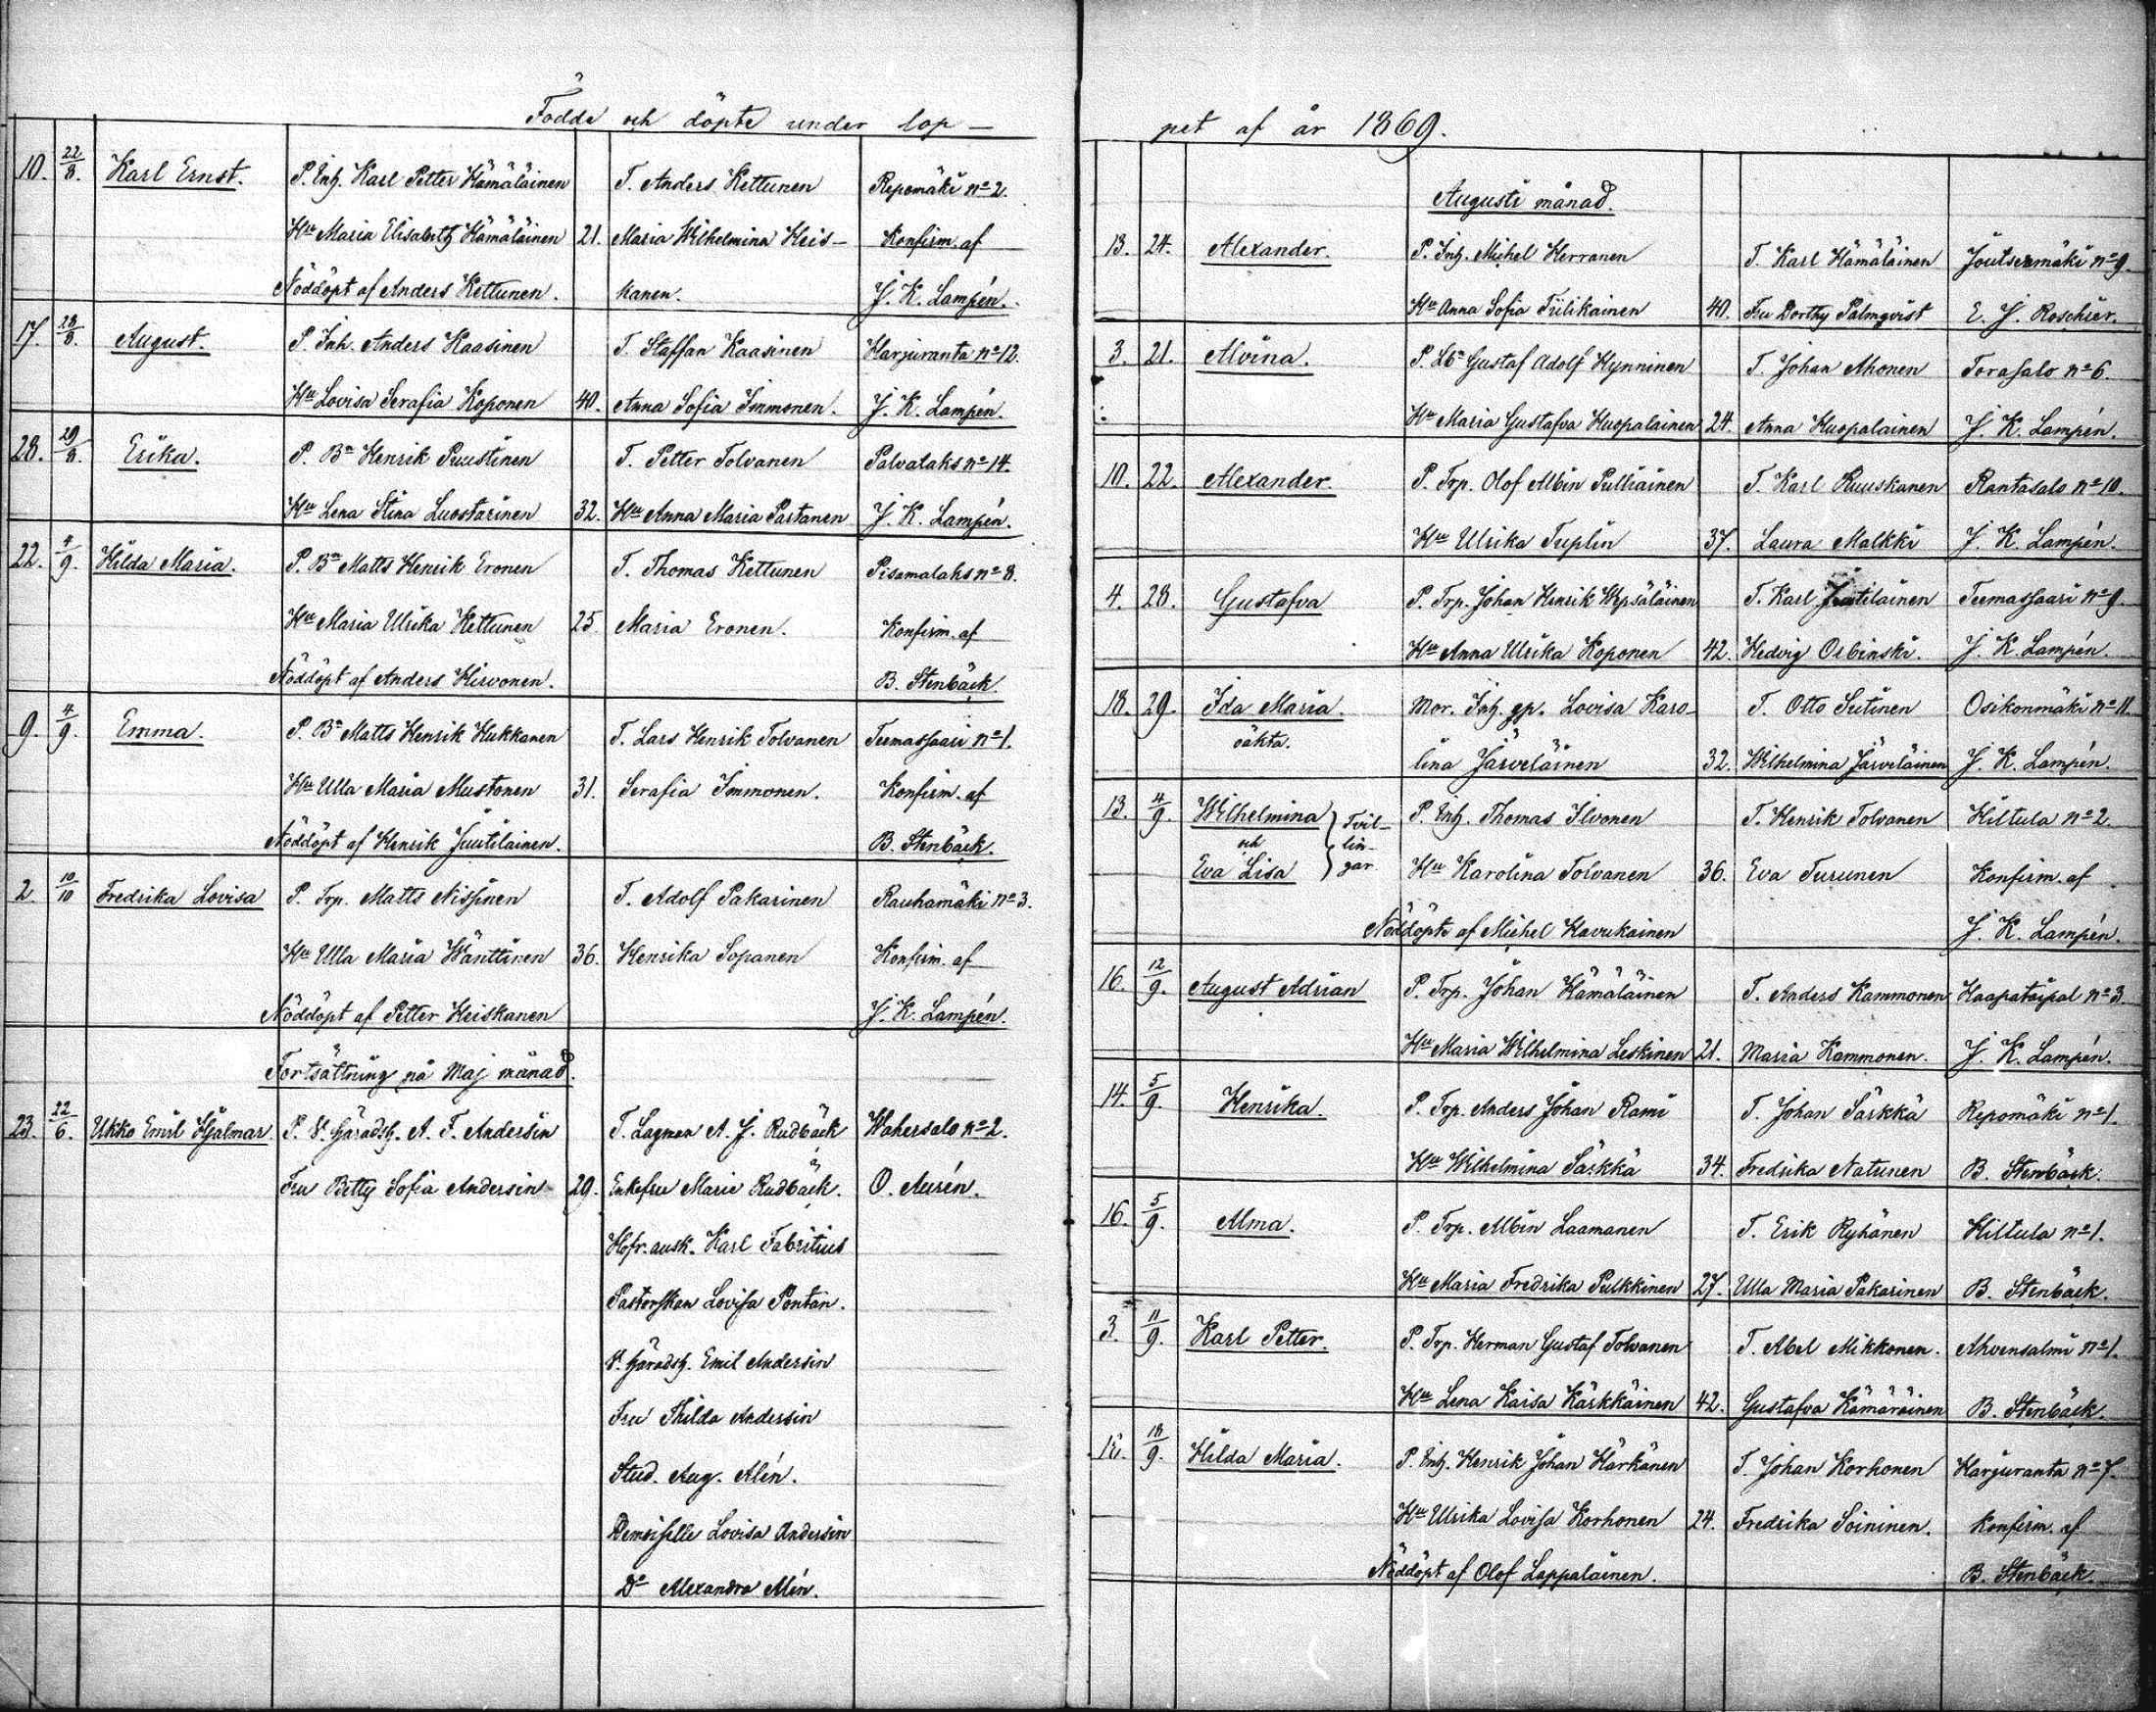 Födde och döpte under lop-
10. 22/8. Karl Ernst. P. Inh. Karl Petter Hämäläinen T. Anders Kettunen Repomäki No 2.
Hu Maria Elisabeth Hämäläinen 21. Maria Wilhelmina Heis- Konfirm. af
Nöddöpt af Anders Kettunen. kanen. J. K. Lampén.
17. 28/8. August. P. Inh. Anders Kaasinen T. Staffan Kaasinen Harjuranta No 12.
Hu Lovisa Serafia Koponen 40. Anna Sofia Immonen. J. K. Lampén.
28. 29/8. Erika. P. Bn Henrik Puustinen T. Petter Tolvanen Palvalaks No 14.
Hu Lena Stina Luostarinen 32. Hu Anna Maria Partanen J. K. Lampén.
22. 4/9. Hilda Maria. P. Bn Matts Henrik Eronen T. Thomas Kettunen Pisamalaks No 8.
Hu Maria Ulrika Kettunen 25. Maria Eronen. Konfirm. af
Nöddöpt af Anders Hirvonen. B. Stenbäck.
9. 4/9. Emma. P. Bn Matts Henrik Hukkanen T. Lars Henrik Tolvanen Teemassaari No 1.
Hu Ulla Maria Mustonen 31. Serafia Immonen. Konfirm. af
Nöddöpt af Henrik Juutilainen. B. Stenbäck.
2. 10/10 Fredrika Lovisa P. Trp. Matts Nissinen T. Adolf Pakarinen Rauhamäki No 3.
Hu Ulla Maria Wänttinen 36. Henrika Sopanen Konfirm. af
Nöddöpt af Petter Heiskanen J. K. Lampén.
Fortsättning på Maj månad.
23. 22/6. Ukko Emil Hjalmar. P. V. Häradsh. A. F. Andersin T. Lagman A. J. Rudbäck Wahersalo No 2.
Fru Betty Sofia Andersin 29. Enkefru Marie Rudbäck. O. Aurén.
Hofr. ausk. Karl Fabritius
Pastorskan Lovisa Pontan.
V. Häradsh. Emil Andersin
Fru Thilda Andersin
Stud. Aug. Alén.
Demoiselle Lovisa Andersin
Do Alexandra Alén.
pet af år 1869.
Augusti månad.
13. 24. Alexander. P. Inh. Michel Herranen T. Karl Hämäläinen Joutsenmäki No 9.
Hu Anna Sofia Tiilikainen 40. Fru Dorthy Palmqvist E. J. Roschier.
3. 21. Alvina. P. Lbn Gustaf Adolf Hynninen T. Johan Ahonen Torasalo No 6.
Hu Maria Gustafva Huopalainen 24. Anna Huopalainen J. K. Lampén.
10. 22. Alexander. P. Trp. Olof Albin Pulliainen T. Karl Ruuskanen Rantasalo No 10.
Hu Ulrika Tuplin 37. Laura Malkki J. K. Lampén.
4. 28. Gustafva P. Trp. Johan Henrik Wepsäläinen T. Karl Juutilainen Teemassaari No 9.
Hu Anna Ulrika Koponen 42. Hedvig Orbinski. J. K. Lampén.
18. 29. Ida Maria. Mor. Inh. gp. Lovisa Karo- T. Otto Sutinen Osikonmäki No 11.
oäkta. lina Järveläinen 32. Wilhelmina Järveläinen J. K. Lampén.
13. 4/9. Wilhelmina Tvil- P. Inh. Thomas Ilvonen T. Henrik Tolvanen Hiltula No 2.
och lin-
Eva Lisa gar. Hu Karolina Tolvanen 36. Eva Turunen Konfirm. af
Nöddöpte af Michel Havukainen J. K. Lampén.
16. 12/9. August Adrian P. Trp. Johan Hämäläinen T. Anders Kammonen Haapataipal No 3.
Hu Maria Wilhelmina Leskinen 21. Maria Kammonen. J. K. Lampén.
14. 5/9. Henrika. P. Trp. Anders Johan Rami T. Johan Särkkä Repomäki No 1.
Hu Wilhelmina Särkkä 34. Fredrika Natunen B. Stenbäck.
16. 5/9. Alma. P. Trp. Albin Laamanen T. Erik Ryhänen Hiltula No 1.
Hu Maria Fredrika Pulkkinen 27. Ulla Maria Pakarinen B. Stenbäck.
3. 11/9. Karl Petter. P. Trp. Herman Gustaf Tolvanen T. Abel Mikkonen. Ahvensalmi No 1.
Hu Lena Kaisa Kärkkäinen 42. Gustafva Kämäräinen B. Stenbäck.
18/9. Hilda Maria. P. Inh. Henrik Johan Härkänen T. Johan Korhonen Harjuranta No 7.
Hu Ulrika Lovisa Korhonen 24. Fredrika Soininen. Konfirm. af
Nöddöpt af Olof Lappalainen. B. Stenbäck.